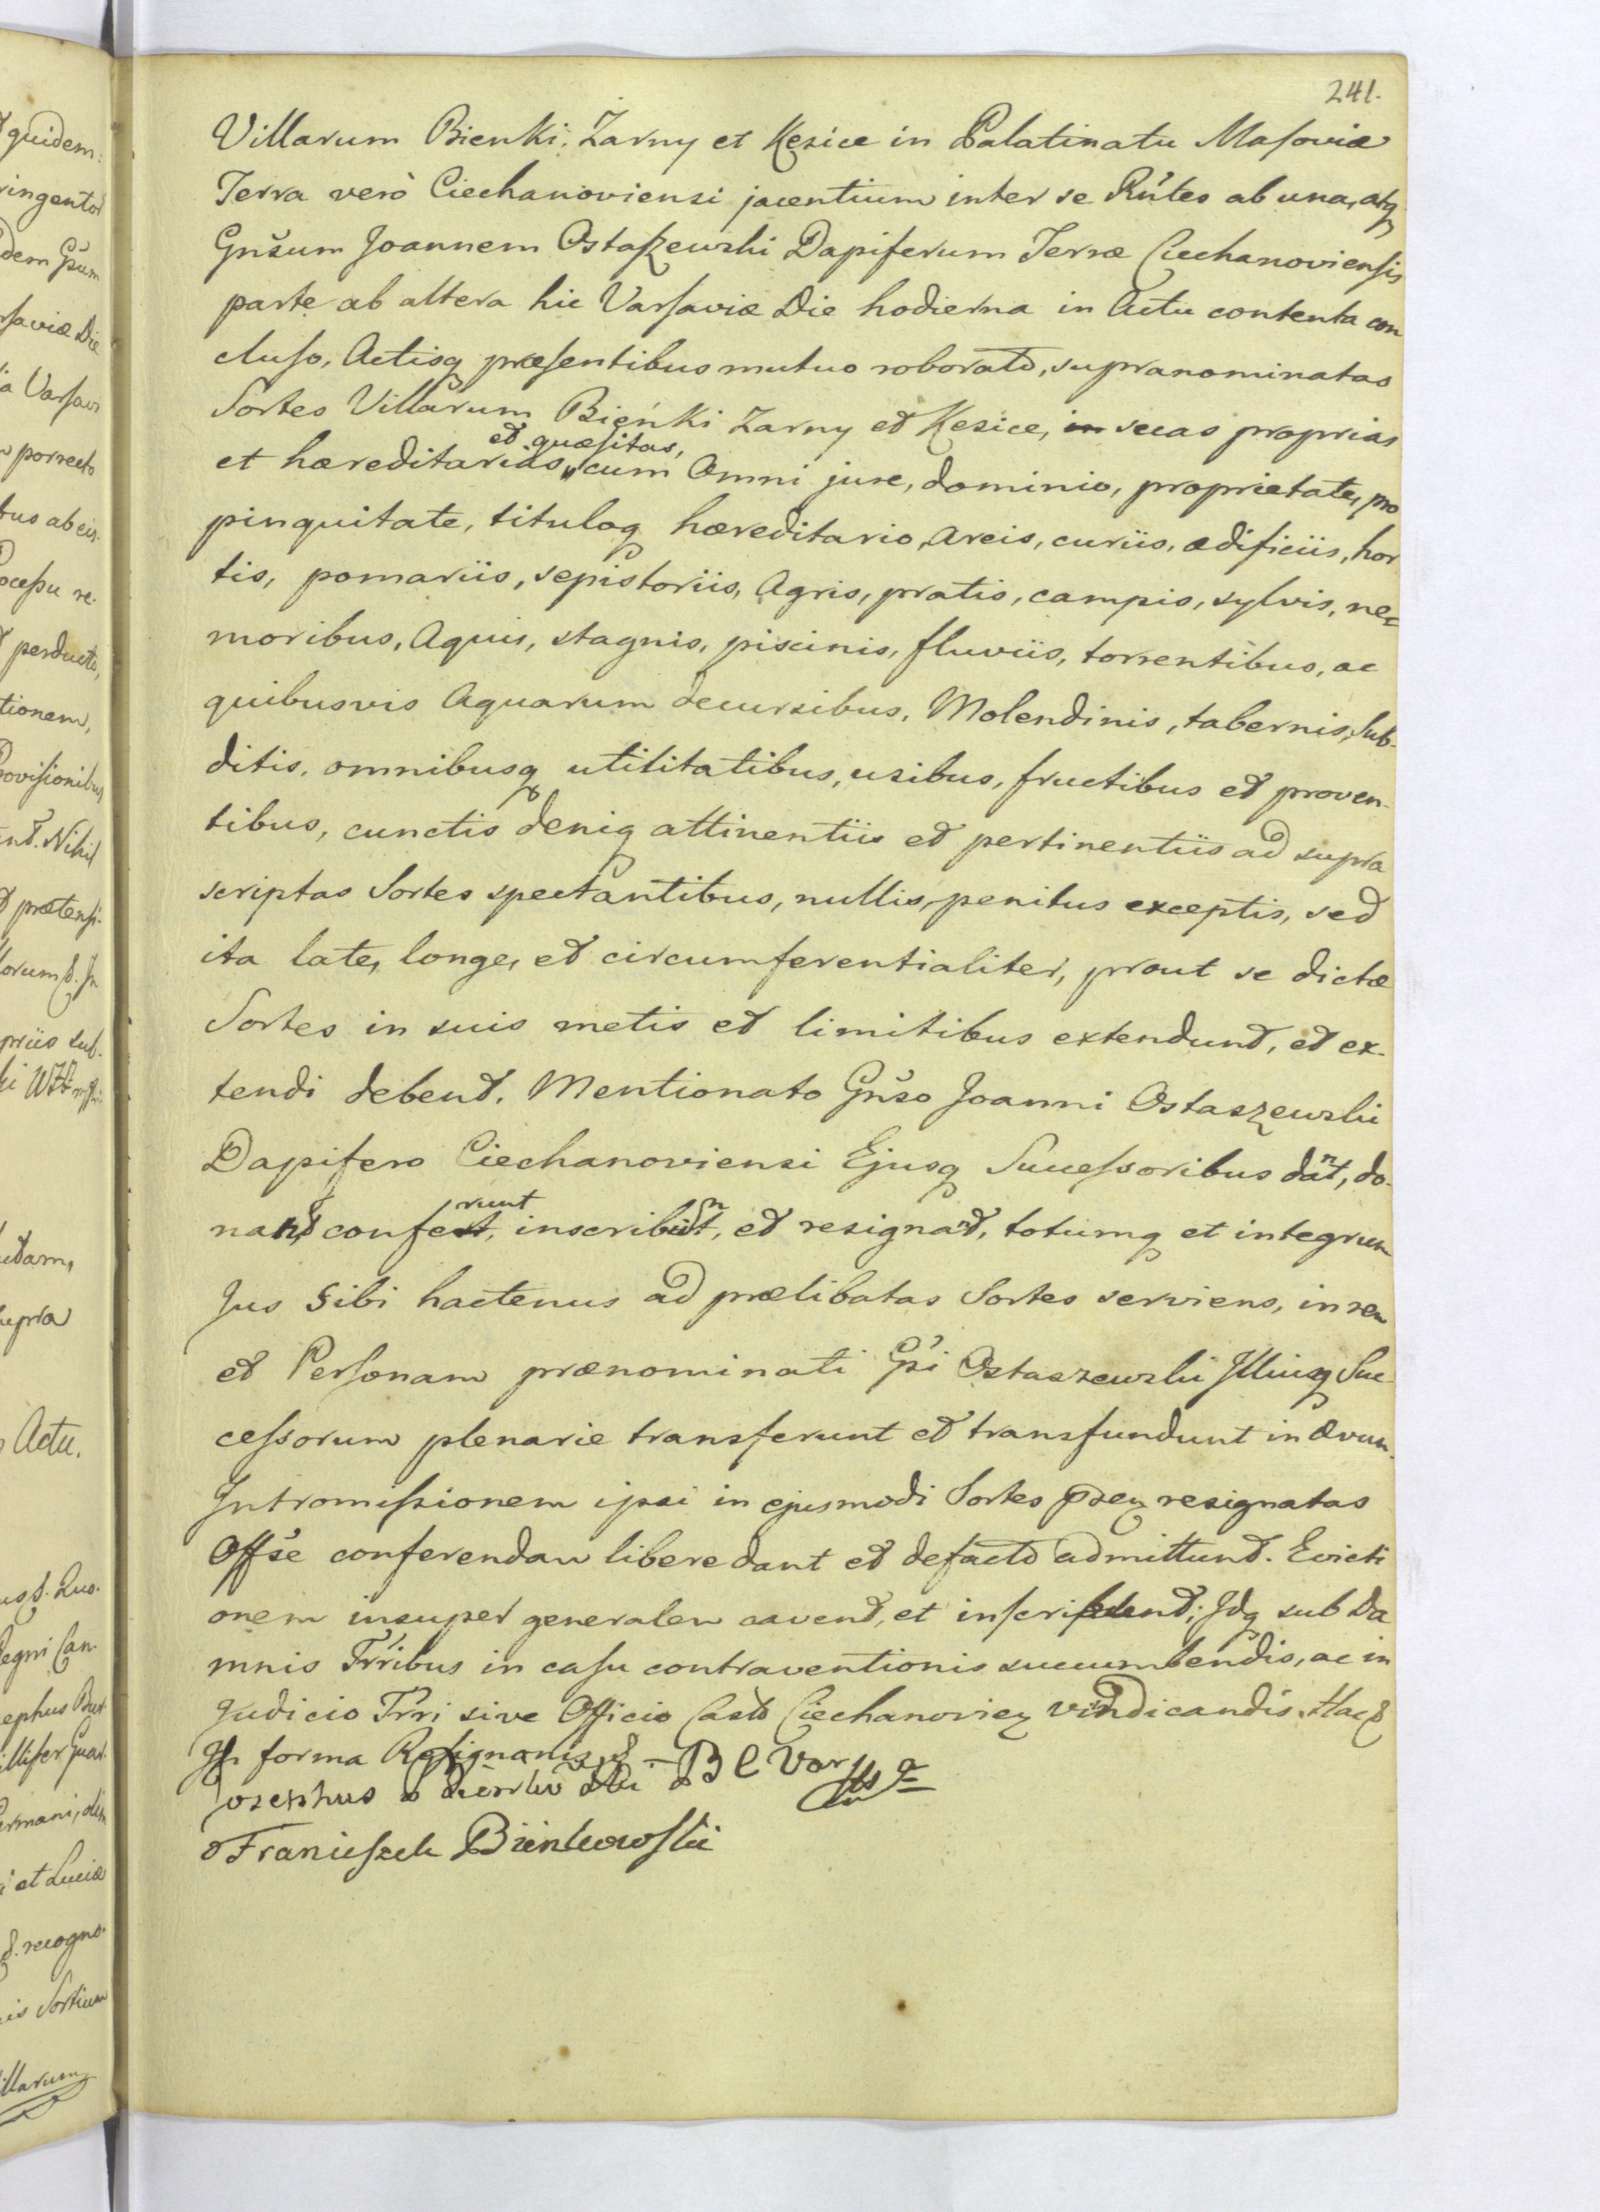 241.
Villarum Bienki, Zarny et Kęsice in Palatinatu Masoviæ
Terra verò Ciechanoviensi jacentium inter se Rñtes ab una, atq
Gñsum Joannem Ostaszewski Dapiferum Terræ Ciechanoviensis
parte ab altera hic Varsaviæ Die hodierna in Actu contenta con
cluso, Actisq præsentibus mutuo roborato, supranominatas
Sortes Villarum Bieńki Zarny et Kęsice, in suas proprias
et quæsitas,
et hæreditarias, cum Omni jure, dominio, proprietate, pro
pinquitate, tituloq hæreditario, Areis, curiis, ædificiis, hor
tis, pomariis, sepistoriis, Agris, pratis, campis, sylvis, ne
moribus, Aquis, stagnis, piscinis, fluviis, torrentibus, ac
quibusvis Aquarum decursibus, Molendinis, tabernis, Sub-
ditis, omnibusq utilitatibus, usibus, fructibus et proven-
tibus, cunctis deniq attinentiis et pertinentiis ad supra
scriptas Sortes spectantibus, nullis penitus exceptis, sed
ita late, longe, et circumferentialiter, prout se dictæ
Sortes in suis metis et limitibus extendunt, et ex-
tendi debent. Mentionato Gñso Joanni Ostaszewski
Dapifero Ciechanoviensi Ejusq Successoribus dant, do-
nant, conferunt, inscribunt, et resignant, totumq et integrum
Jus Sibi hactenus ad prælibatas Sortes serviens, in rem
et Personam prænominati Gsi Ostaszewski Illiusq Suc
cessorum plenarie transferunt et transfundunt in ævum.
Intromissionem ipsi in ejusmodi Sortes resignatas
Offse conferendam libere dant et defacto admittunt. Evicti
onem insuper generalem cavent, et inscribunt; Idq sub Da
mnis Trribus in casu contraventionis succumbendis, ac in
Judicio Trri sive Officio Casti Ciechanovien vindicandis. Hac
In forma Resignanis
Franciszek Bieńkowski